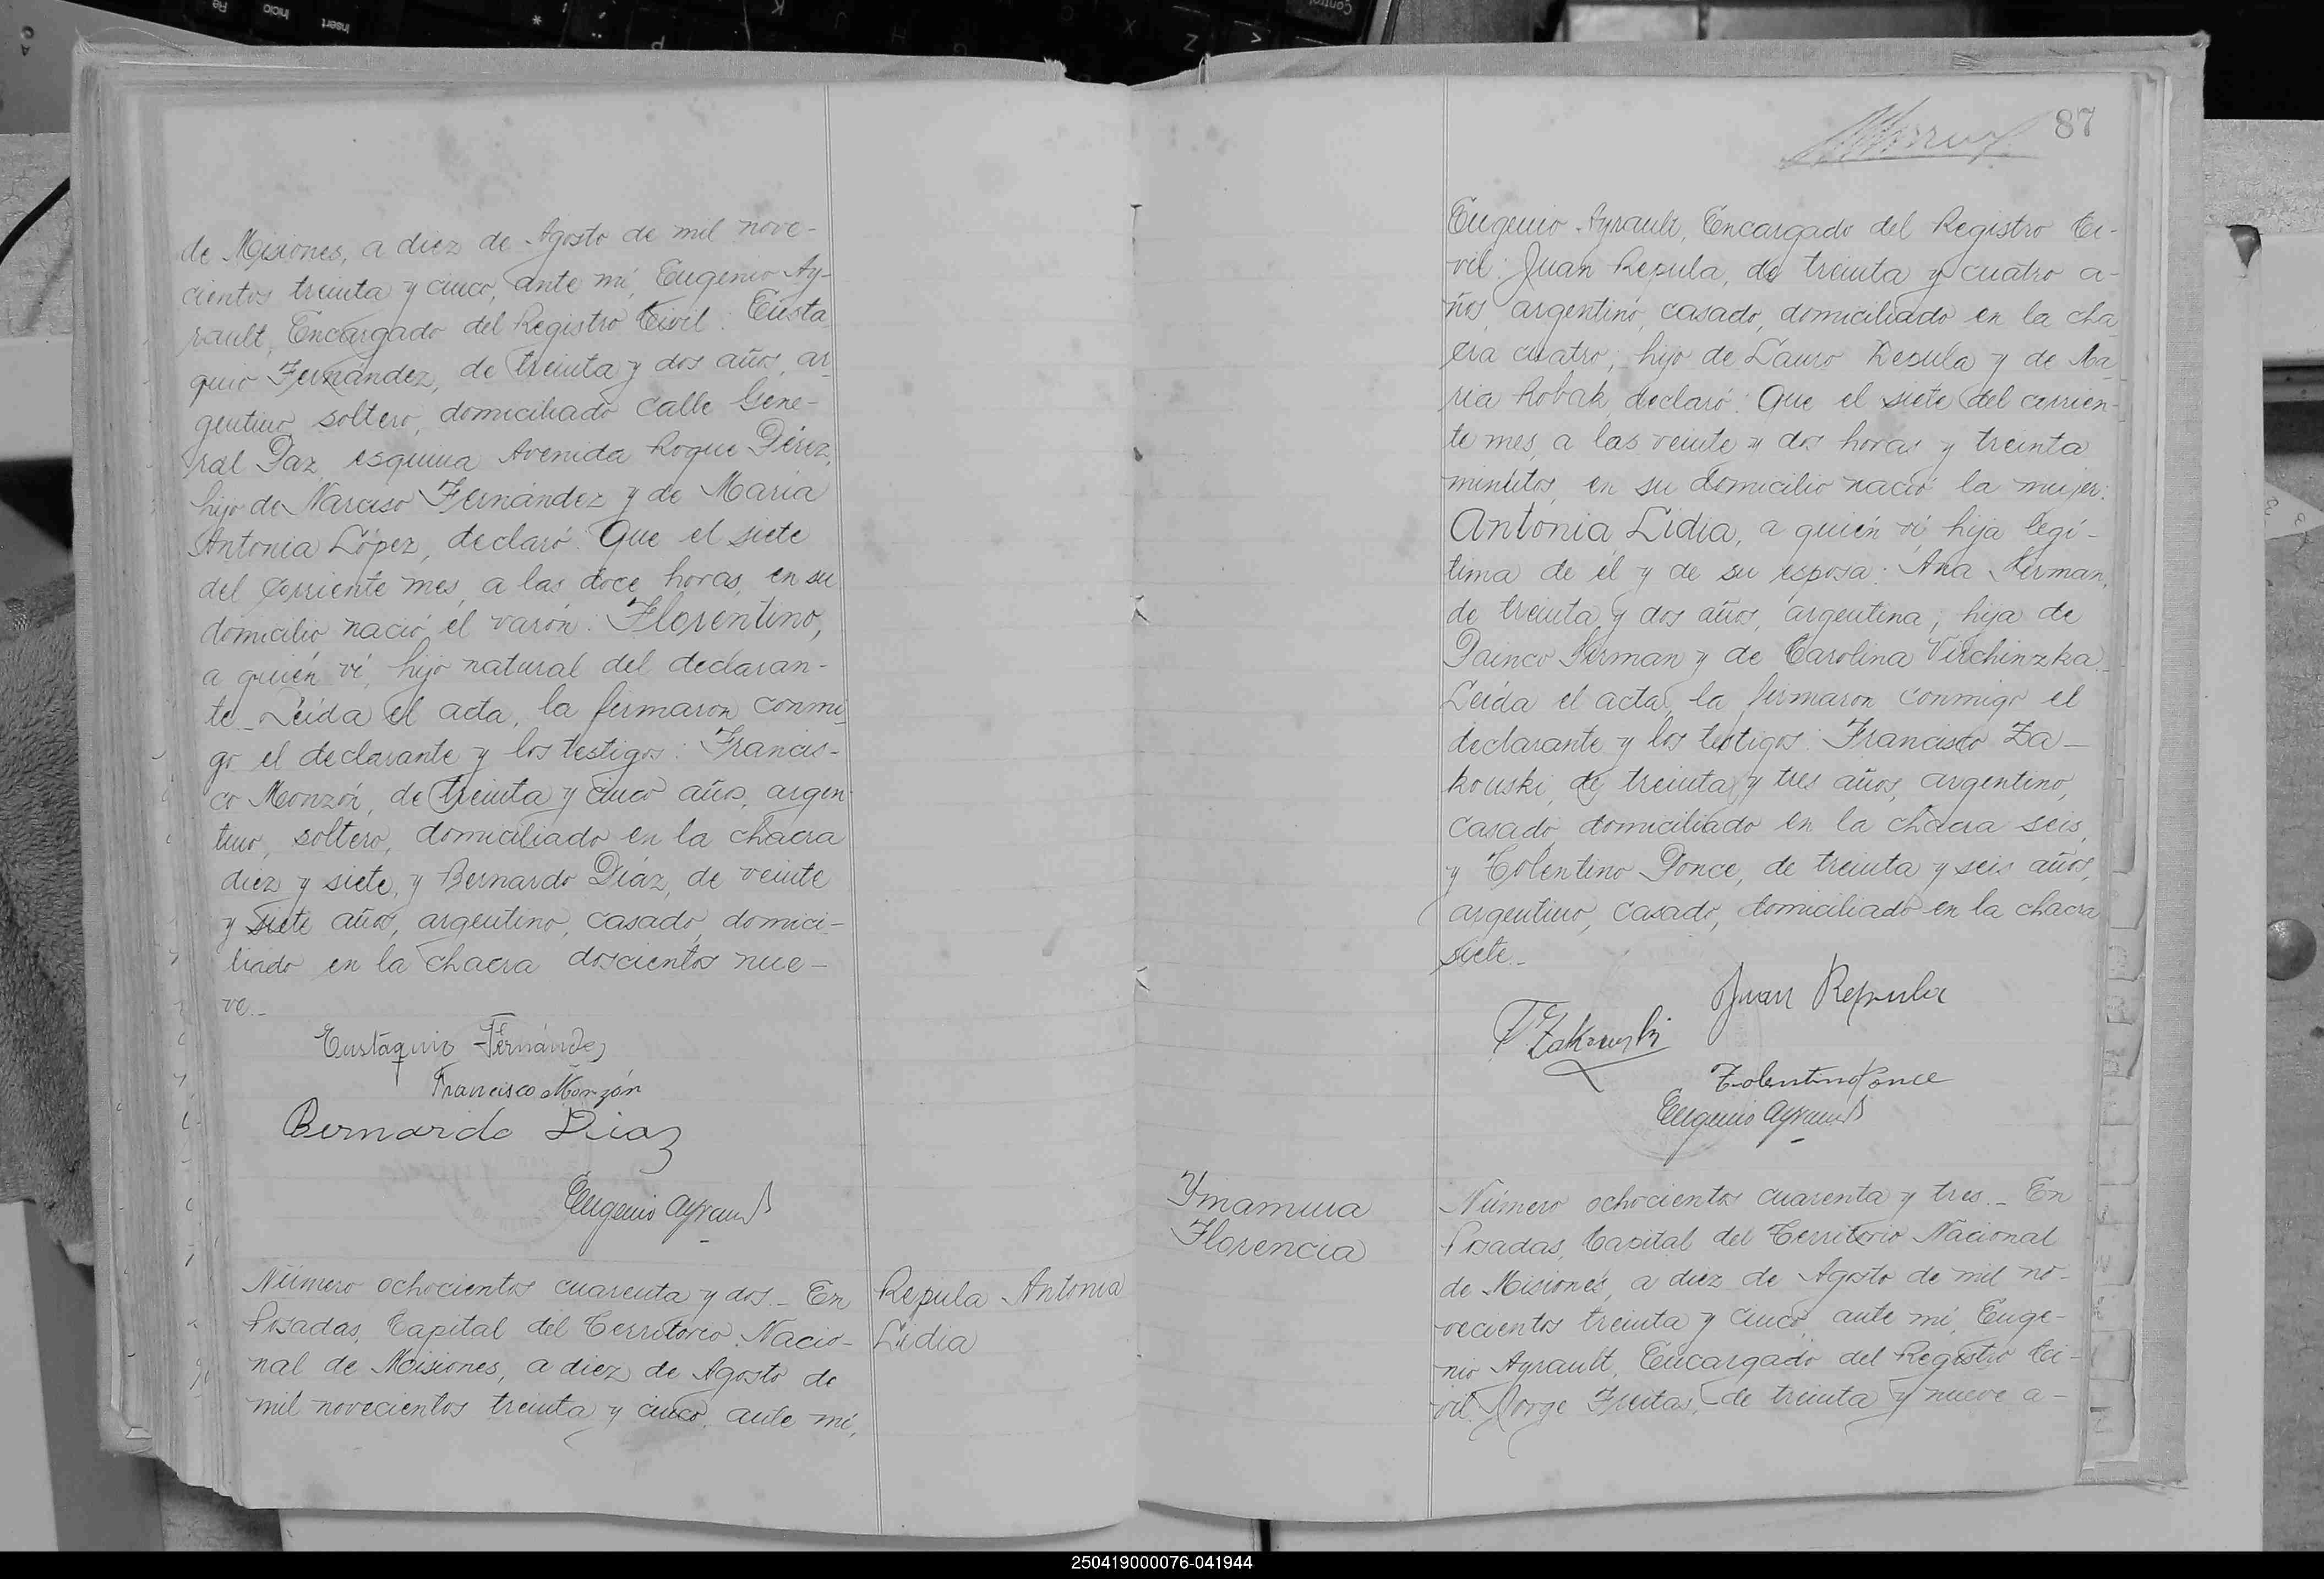 de Misiones, a diez de Agosto de mil nove-
cientos treinta y cinco, ante mí, Eugenio Ay-
rault, Encargado del Registro Civil: Eusta
quio Fernández, de treinta y dos años, ar
gentino, soltero, domiciliado calle Gene-
ral Paz esquina Avenida Roque Pérez,
hijo de Narciso Fernández y de María
Antonia López, declaró: Que el siete
del corriente mes, a las doce horas, en su
domicilio nació el varón: Florentino,
a quién ví, hijo natural del declaran-
te._ Leída el acta, la firmaron conmi
go el declarante y los testigos: Francis-
co Monzón, de treinta y cinco años, argen
tino, soltero, domiciliado en la chacra
diez y siete, y Bernardo Díaz, de veinte
y siete años, argentino, casado, domici-
liado en la chacra doscientos nue-
ve._
Eustaquio Fernández
Francisco Monzón
Bernardo Diaz
Eugenio Ayrault
Número ochocientos cuarenta y dos._ En
Posadas, Capital del Territorio Nacio-
nal de Misiones, a diez de Agosto de
mil novecientos treinta y cinco, ante mí,
Repula Antonia
Lidia
87
Eugenio Ayrault, Encargado del Registro Ci-
vil: Juan Repula, de treinta y cuatro a-
ños, argentino, casado, domiciliado en la cha
cra cuatro; hijo de Lauro Repula y de Ma
ria Robak, declaró: Que el siete del corrien-
te mes, a las veinte y dos horas y treinta
minutos, en su domicilio nació la mujer:
Antonia Lidia, a quién ví, hija legí-
tima de él y de su esposa: Ana Kerman,
de treinta y dos años, argentina; hija de
Painco Kerman y de Carolina Virchinzka._
Leída el acta, la firmaron conmigo el
declarante y los testigos: Francisco Za-
kouski, de treinta y tres años, argentino,
casado, domiciliado en la chacra seis,
y Tolentino Ponce, de treinta y seis años,
argentino, casado, domiciliado en la chacra
siete._
Juan Repula
F. Zakouski
Tolentino Ponce
Eugenio Ayrault
Ymamura
Florencia
Número ochocientos cuarenta y tres._ En
Posadas, Capital del Territorio Nacional
de Misiones, a diez de Agosto de mil no-
vecientos treinta y cinco, ante mí, Euge-
nio Ayrault, Encargado del Registro Ci-
vil: Jorge Freitas, de treinta y nueve a-
250419000076-041944